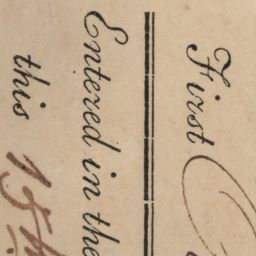 First
Entered in the
this 15th